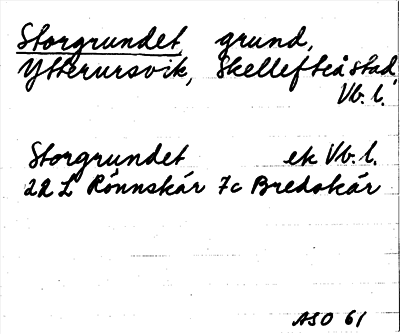 Storgrundet grund,
Ytterursvik, Skellefteå stad,
Vb. l.
Storgrundet ek Vb. l.
22 L Rönnskär 7c Bredskär
ASO 61